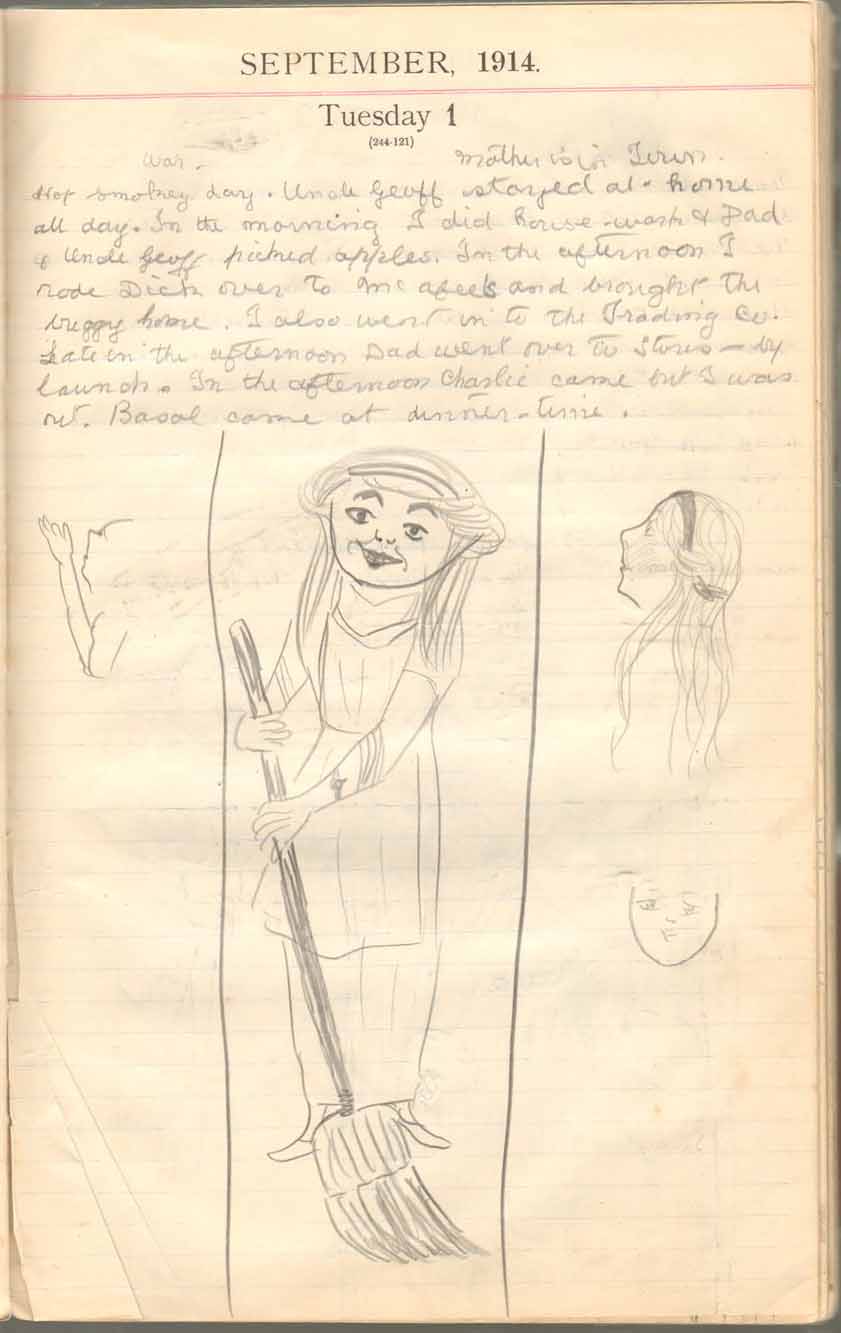 SEPTEMBER, 1914.
Tuesday 1
(244-121)
War. Mother is in Town.
Hot smokey day. Uncle Geoff stayed at home
all day. In the morning I did house-work & Dad
& Uncle Geoff picked apples. In the afternoon I
rode Dick over to and brought the
buggy home. I also went in to the Trading Co.
Late in the afternoon Dad went over to Stores - by
launch. In the afternoon Charlie came but I was
out. Basal came at dinner-time.